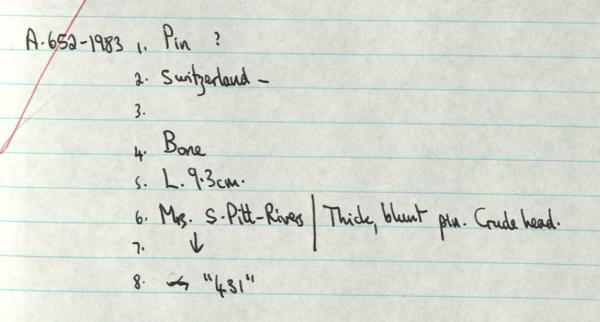 A.652-1983 1. Pin ?
2. Switzerland -
3.
4. Bone
5. L. 9.3cm.
6. Mrs. S. Pitt-Rivers | Thick, blunt pin. Crude head.
7. ↓
8. "431"